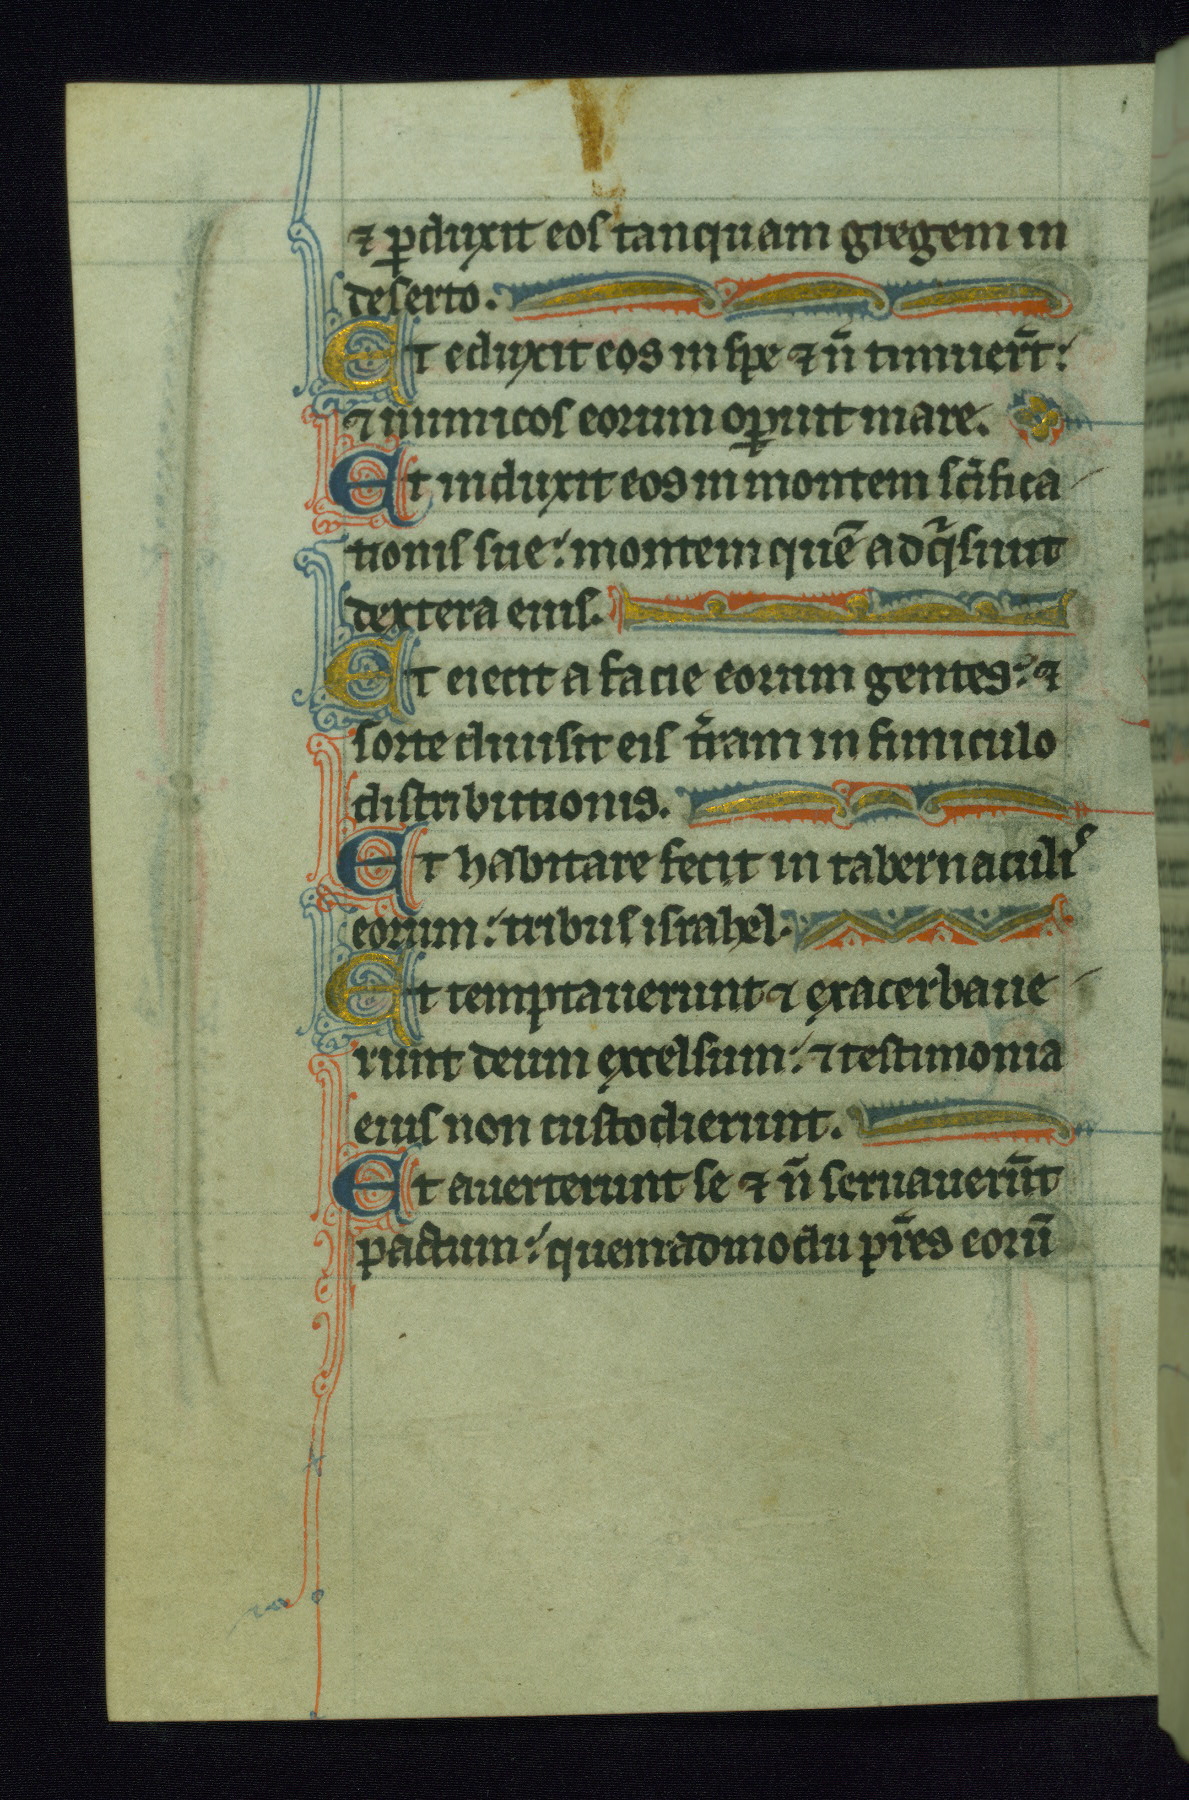 ⁊ ꝑduxit eos tanquam gregem in
deserto.
Et eduxit eos in spe ⁊ n̄ timuer̄t:
⁊ inimicos eorum oꝑuit mare.
Et induxit eos in montem sc̄ifica
tionis sue: montem quē adq̇siuit
dextera eius.
Et eiecit a facie eorum gentes: ⁊
sorte diuisit eis t̄ram in funiculo
distributionis.
Et habitare fecit in tabernaculis
eorum: tribus israhel.
Et temptauerunt ⁊ exacerbaue
runt deum excelsum: ⁊ testimonia
eius non custodierunt.
Et auerterunt se ⁊ n̄ seruauerūt
pactum: quemadmodu pr̄es eorū